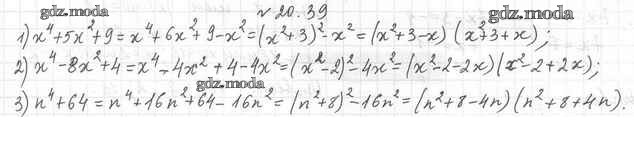 gdz.moda № 20.39 gdz.moda
1) x⁴+5x²+9 = x⁴+6x²+9-x² = (x²+3)²-x² = (x²+3-x) (x²+3+x);
2) x⁴-8x²+4 = x⁴-4x²+4-4x² = (x²-2)²-4x² = (x²-2-2x)(x²-2+2x);
gdz.moda
3) n⁴+64 = n⁴+16n²+64-16n² = (n²+8)²-16n² = (n²+8-4n)(n²+8+4n).